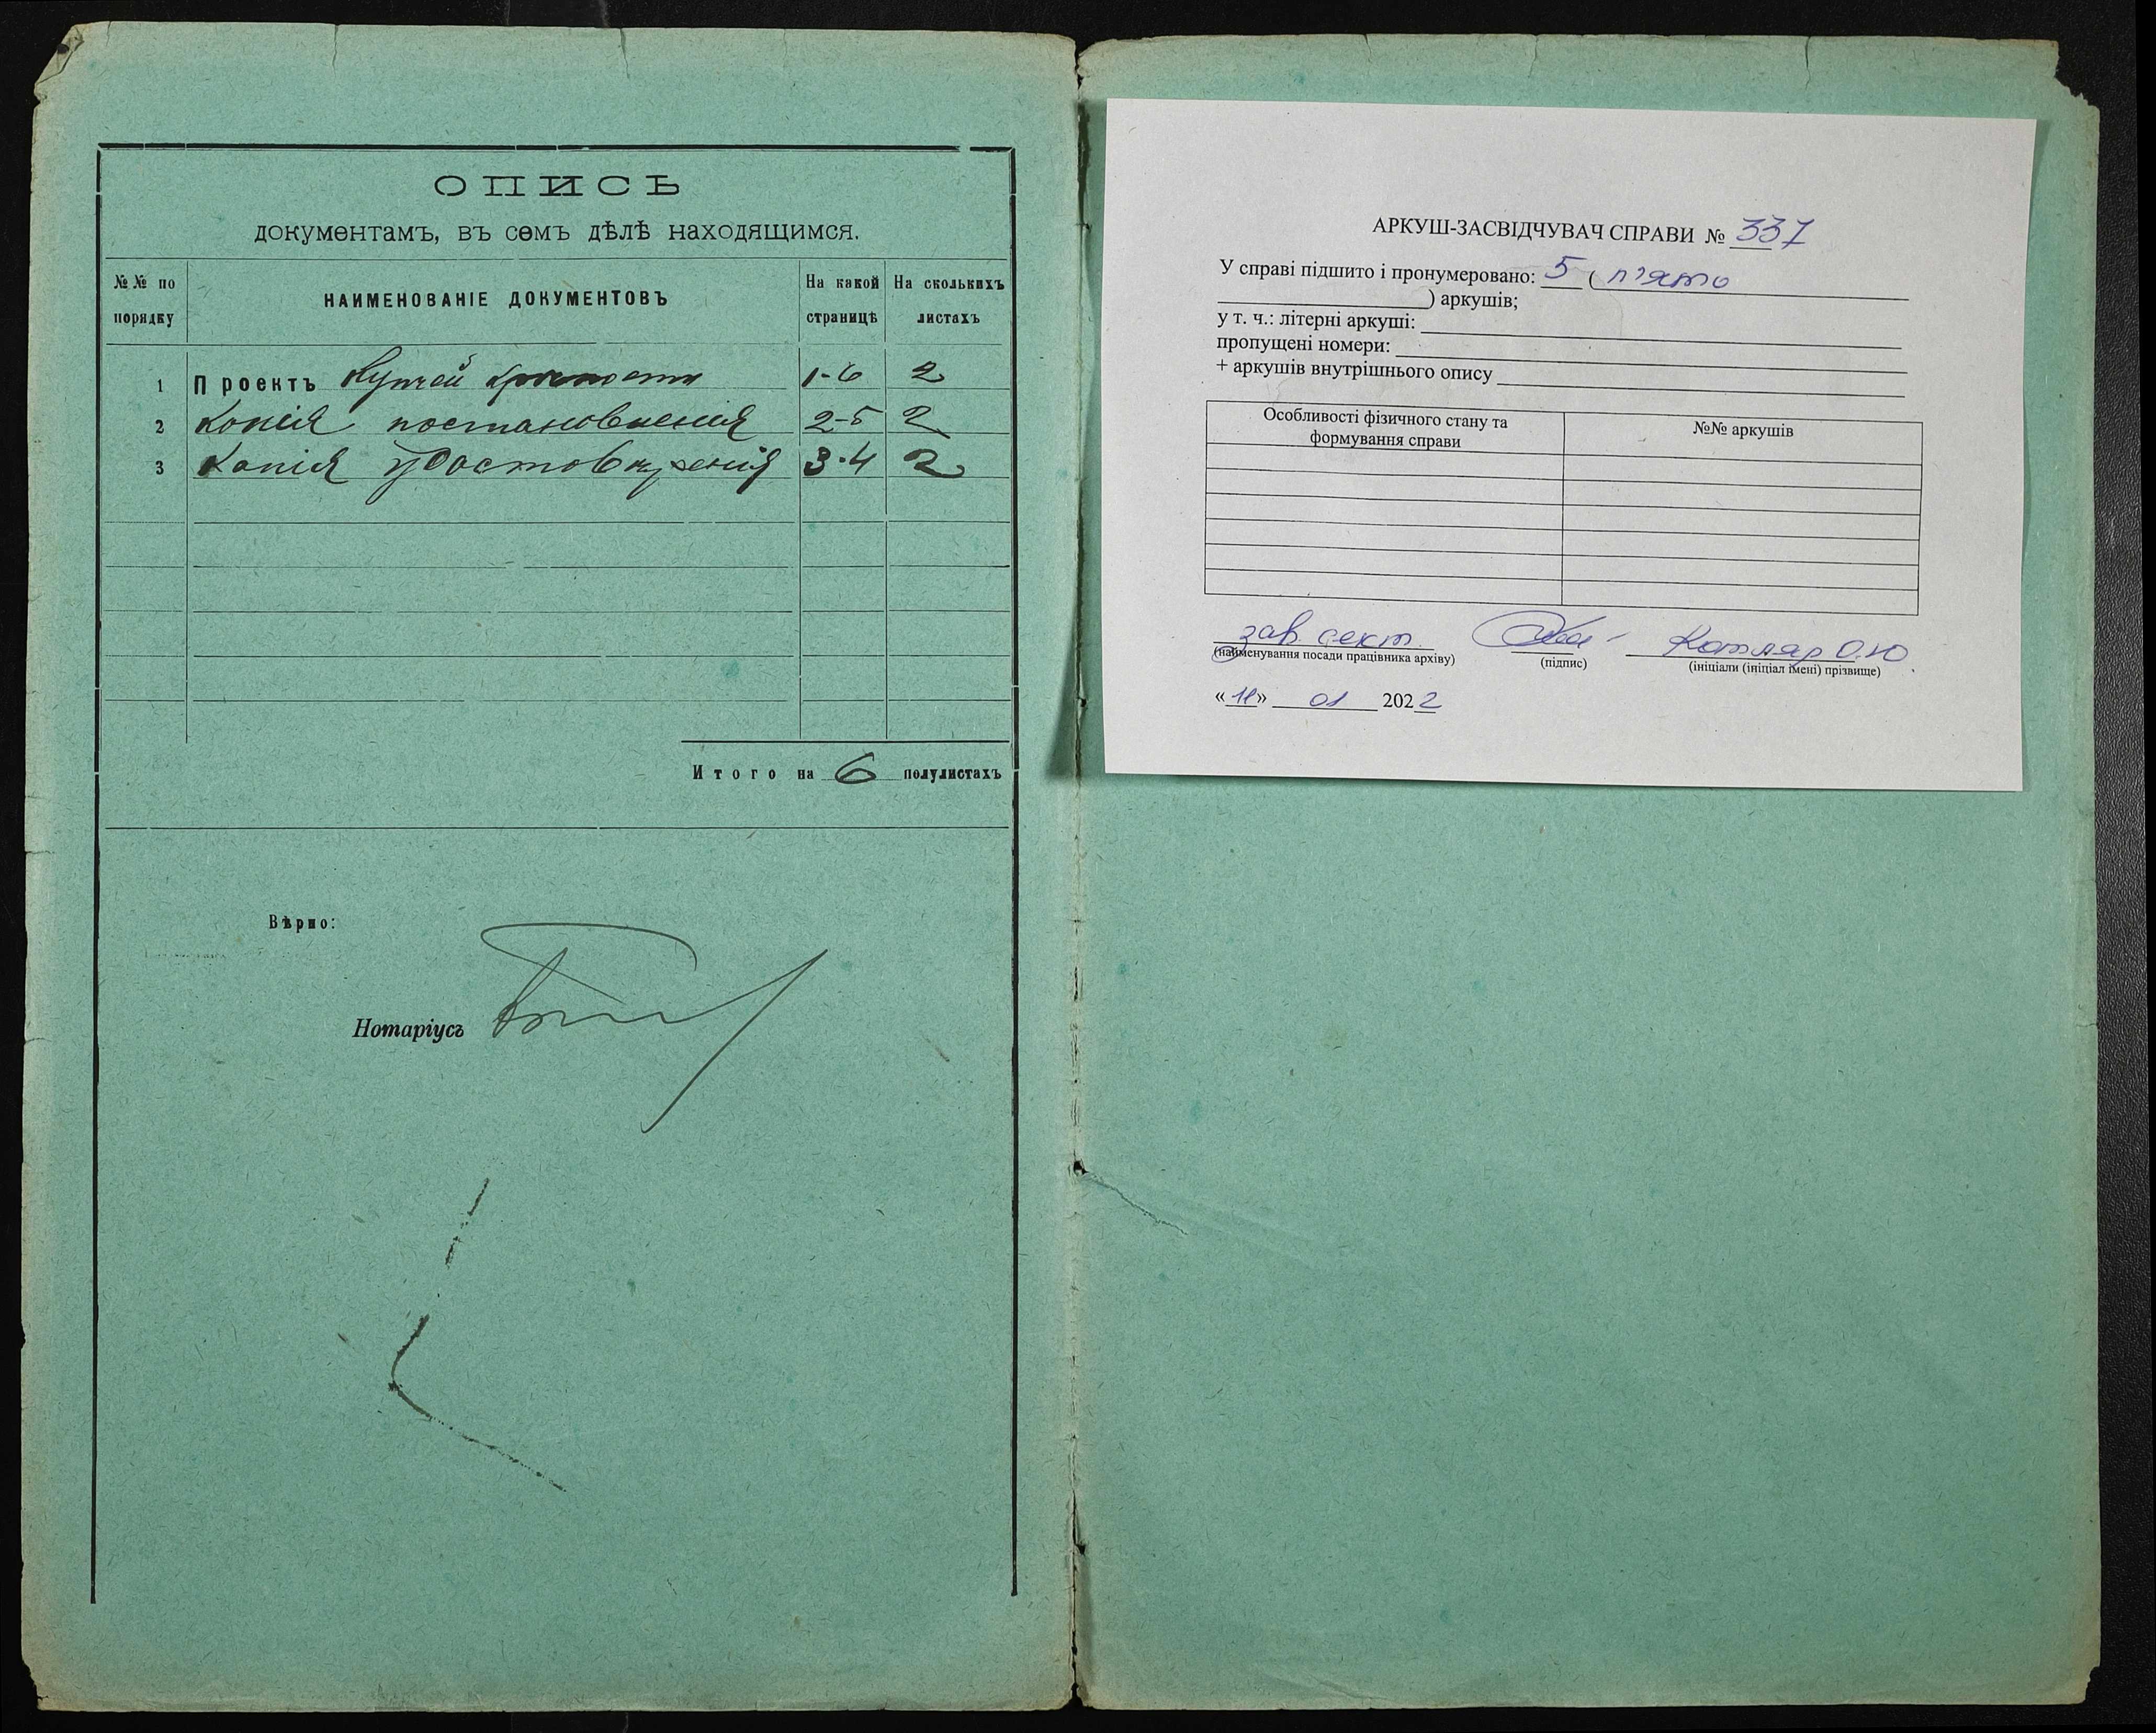 ОПИСЬ
документамъ, въ семъ дѣлѣ находящимся.
№№ по порядку
НАИМЕНОВАНІЕ ДОКУМЕНТОВЪ
На какой страницѣ
На сколькихъ листахъ
1 Проектъ Купчей крѣпости 1-6 2
2 Копія постановленія 2-5 2
3 Копія удостовѣренія 3-4 2
Итого на 6 полулистахъ
Вѣрно:
Нотаріусъ
АРКУШ-ЗАСВІДЧУВАЧ СПРАВИ № 337
У справі підшито і пронумеровано: 5 ( п'ято
) аркушів;
у т. ч.: літерні аркуші:
пропущені номери:
+ аркушів внутрішнього опису
Особливості фізичного стану та формування справи
№№ аркушів
зав. сект. Котляр О.Ю.
(найменування посади працівника архіву) (підпис) (ініціали (ініціал імені) прізвище)
«11» 01 2022